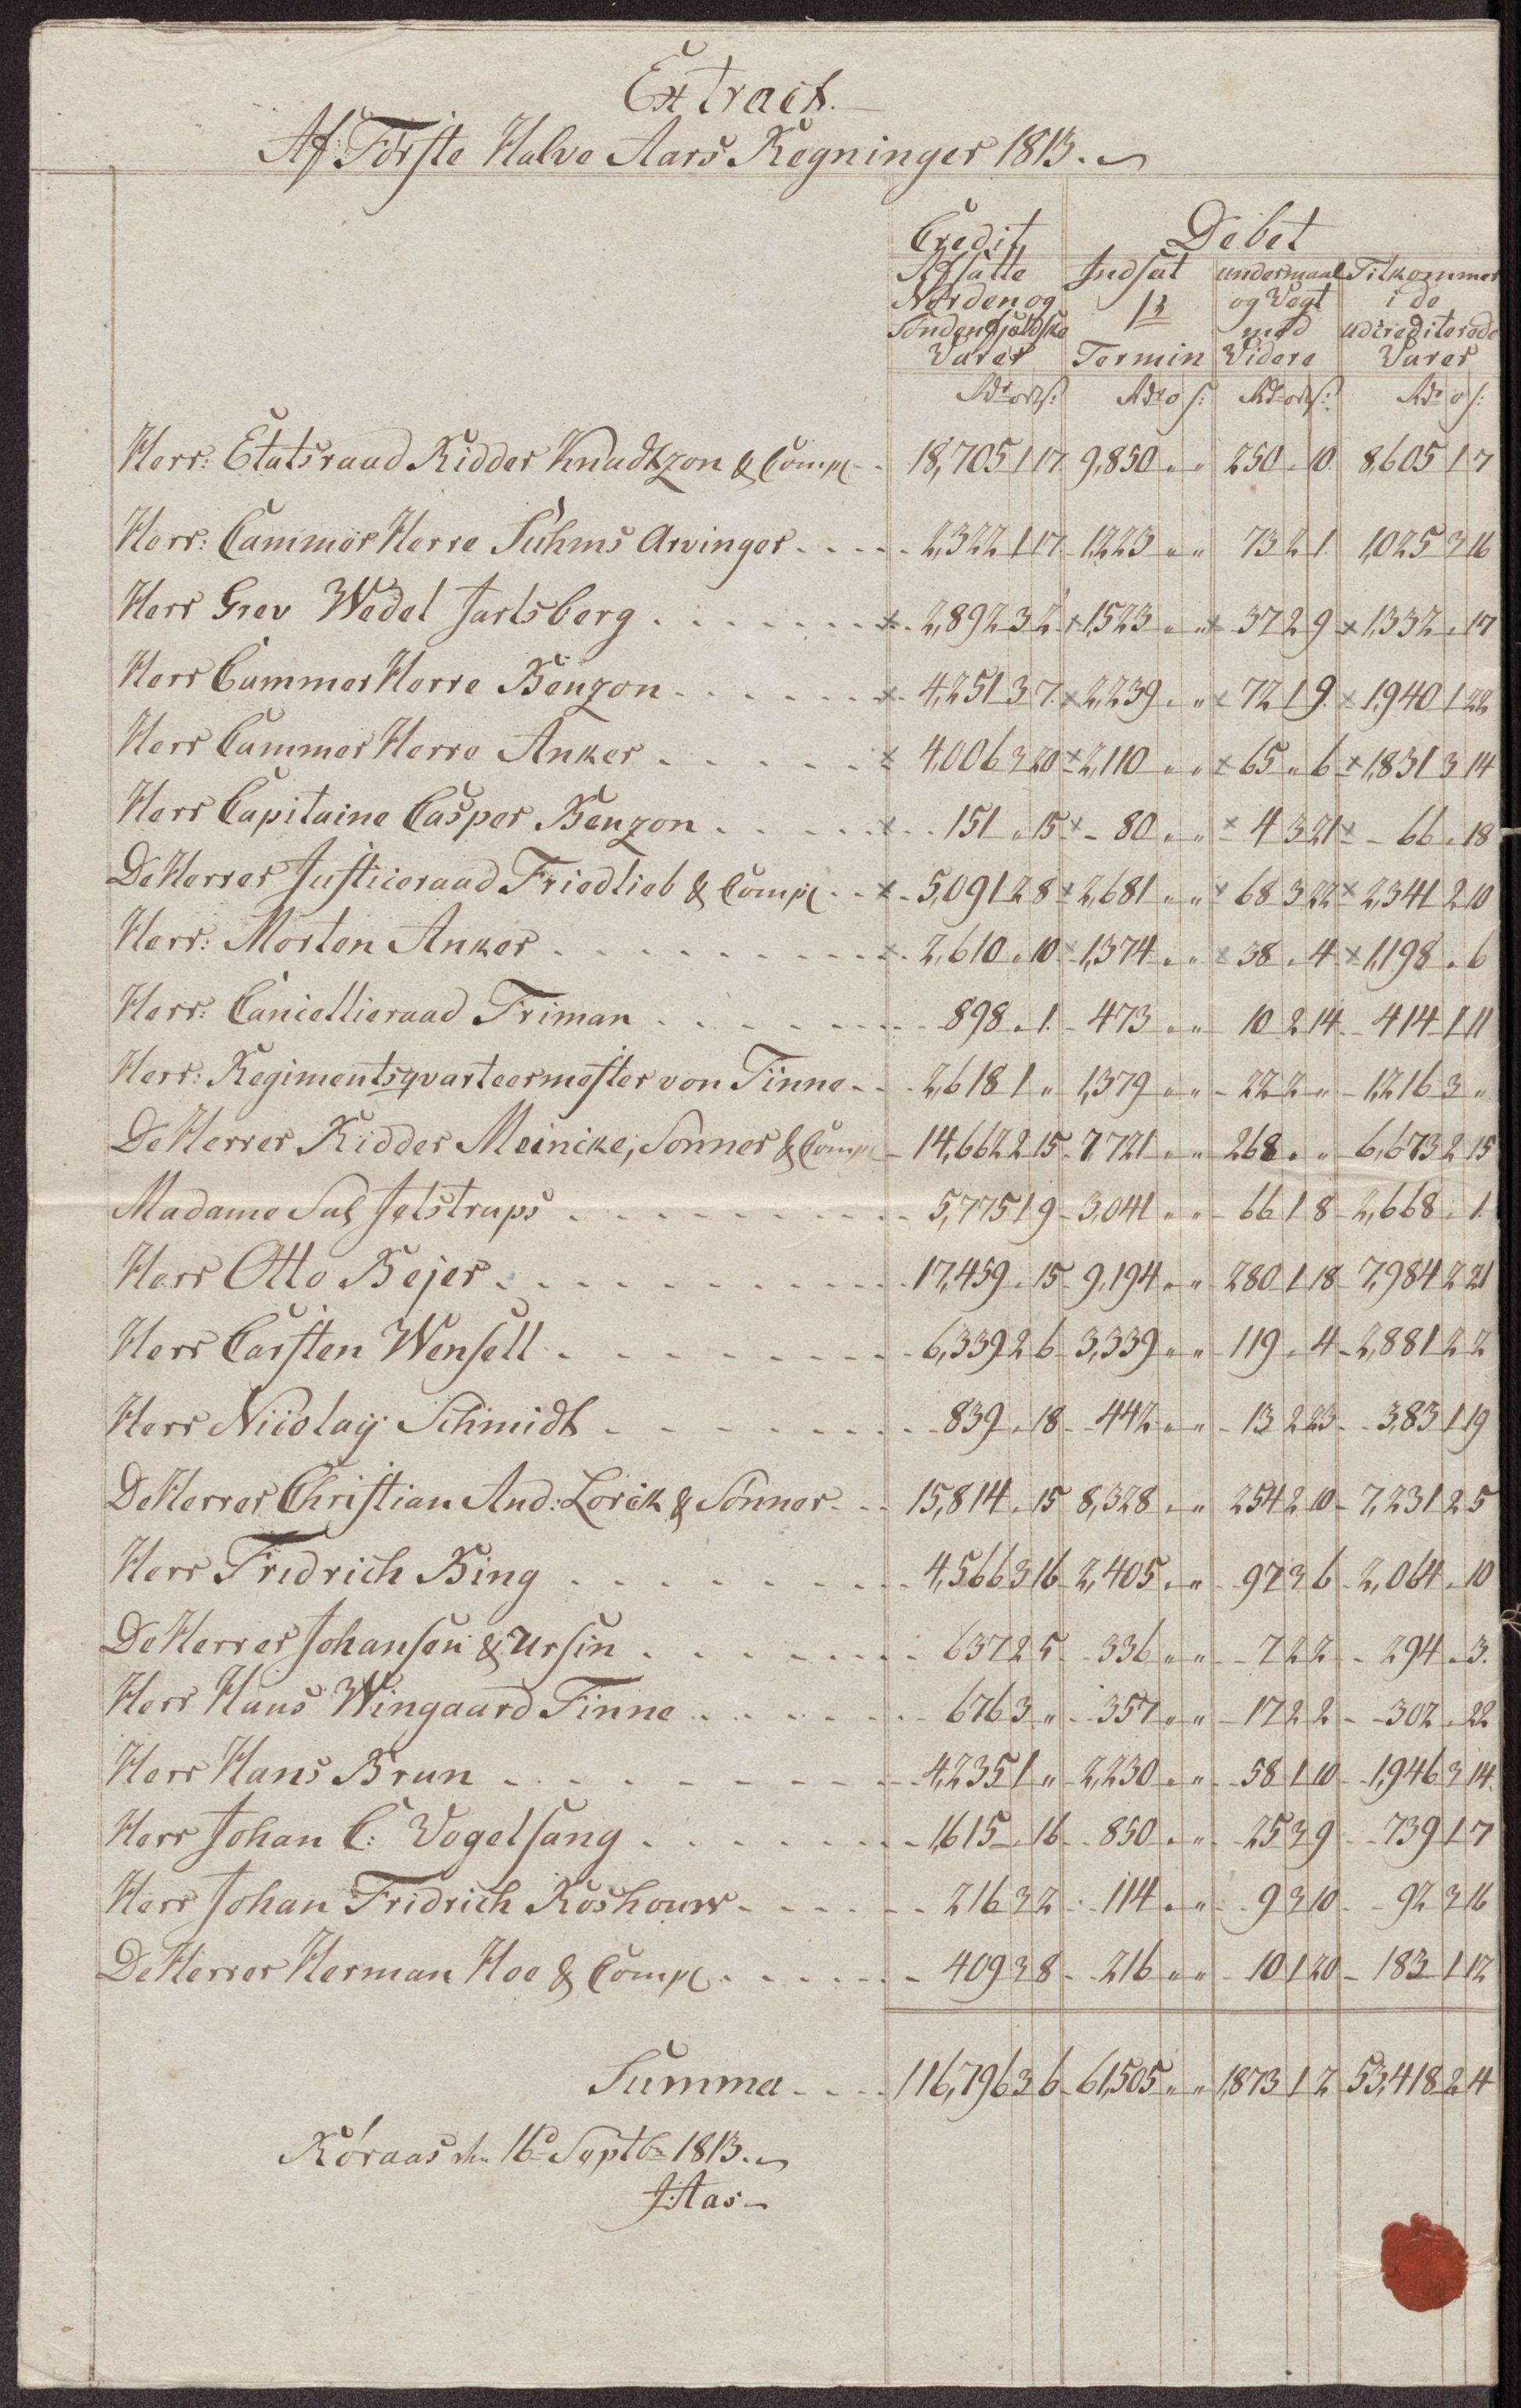 Extract.
Af Første Halve Aars Regninger 1813.
Credit Debet
Afsatte Indsat undermaal Tilkommer
Norden og 1ste og Vegt i de
Søndenfjeldske med udcrediterede
Varer Termin Videre Varer
Rdr ort s: Rdr o s: Rdr ort s: Rdr o s:
Herr: Etatsraad Ridder Knudtzon & Comp 18,705 1 17 9,850 " " 250 " 10 8,605 1 7
Herr: Cammer Herre Suhms Arvinger 2,322 1 17 1,223 " " 73 2 1 1,025 3 16
Herr Grev Wedel Jarlsberg x 2,892 3 2 x 1,523 " " x 37 2 9 x 1,332 " 17
Herr Cammer Herre Benzon x 4,251 3 7 x 2,239 " " x 72 1 9 x 1,940 1 22
Herr Cammer Herre Anker x 4,006 3 20 x 2,110 " " x 65 " 6 x 1,831 3 14
Herr Capitaine Casper Benzon x 151 " 15 x 80 " " x 4 3 21 x 66 " 18
De Herrer Justiceraad Friedlieb & Comp x 5,091 2 8 x 2,681 " " x 68 3 22 x 2,341 2 10
Herr: Morten Anker x 2,610 " 10 x 1,374 " " x 38 " 4 x 1,198 " 6
Herr: Cancellieraad Friman 898 " 1 473 " " 10 2 14 414 1 11
Herr: Regimentsqvarteermester von Finne 2,618 1 " 1,379 " " 22 2 " 1,216 3 "
De Herrer Ridder Meincke, Sønner & Comp 14,662 2 15 7,721 " " 268 " " 6,673 2 15
Madame Sal Jelstrups 5,775 1 9 3,041 " " 66 1 8 2,668 " 1
Herr Otto Bejer 17,459 " 15 9,194 " " 280 1 18 7,984 2 21
Herr Carsten Wensell 6,339 2 6 3,339 " " 119 " 4 2,881 2 2
Herr Nicolay Schmidt 839 " 18 442 " " 13 2 23 383 1 19
De Herrer Christian And: Lorck & Sønner 15,814 " 15 8,328 " " 254 2 10 7,231 2 5
Herr Fredrich Bing 4,566 3 16 2,405 " " 97 3 6 2,064 " 10
De Herrer Johansen & Ursin 637 2 5 336 " " 7 2 2 294 " 3
Herr Hans Wingaard Finne 676 3 " 357 " " 17 2 2 302 " 22
Herr Hans Brun 4,235 1 " 2,230 " " 58 1 10 1,946 3 14
Herr Johan C: Vogelsang 1,615 " 16 850 " " 25 3 9 739 1 7
Herr Johan Fridrich Roshouw 216 3 2 114 " " 9 3 10 92 3 16
De Herrer Herman Hoe & Comp 409 3 8 216 " " 10 1 20 183 1 12
Summa 116,796 3 6 61,505 " " 1,873 1 2 53,418 2 4
Røraas d. 16de Septbr 1813.
J: Aas